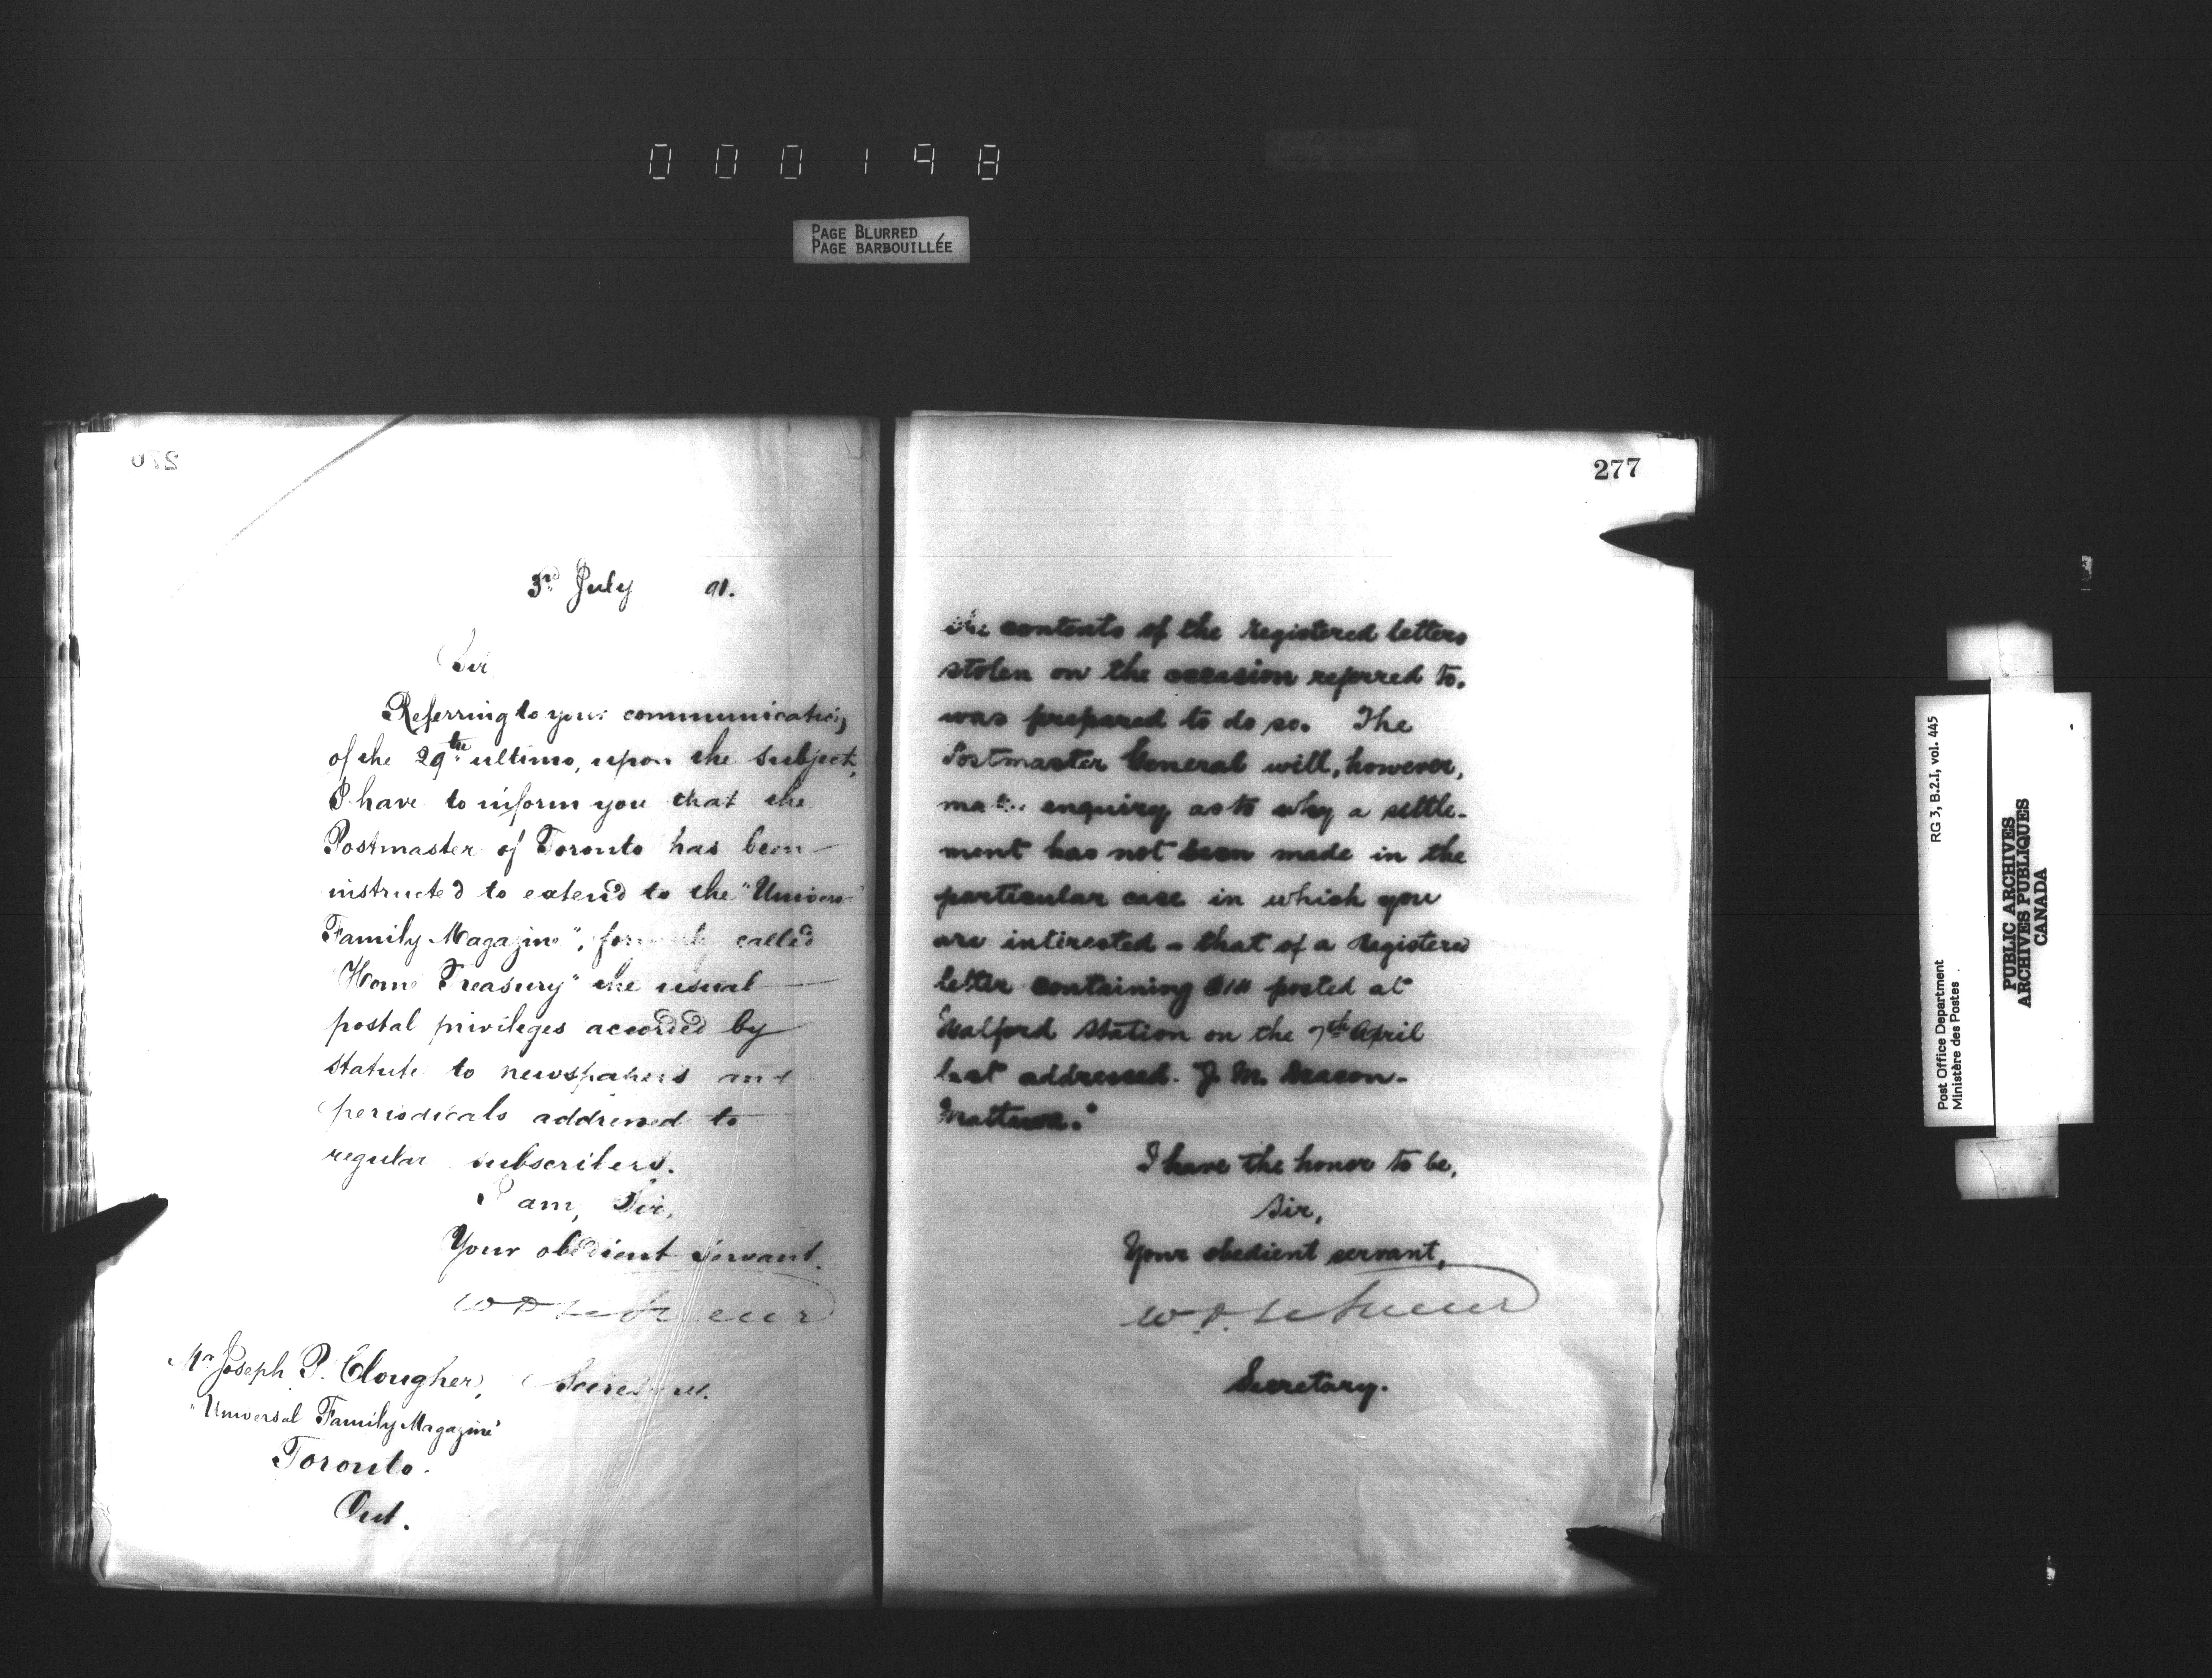 000198
PAGE BLURRED
PAGE BARBOUILLÉE
276
3rd July 91.
Sir
Referring to your communication
of the 29th ultimo, upon the subject,
I have to inform you that the
Postmaster of Toronto has been
instructed to extend to the "Univers
Family Magazine", formerly called
"Home Treasury" the usual
postal privileges accorded by
statute to newspapers and
periodicals addressed to
regular subscribers.
I am, Sir,
Your obedient servant.
Secretary.
Mr Joseph P. Clougher,
"Universal Family Magazine"
Toronto.
Ont.
277
the contents of the registered letters
stolen on the occasion referred to.
was prepared to do so. The
Postmaster General will, however,
make enquiry as to why a settle-
ment has not been made in the
particular case in which you
are interested - that of a registered
letter containing posted at
Walford Station on the 7th April
last addressed. J. M. Deacon.
Mattawa."
I have the honor to be,
Sir,
Your obedient servant,
Secretary.
RG 3, B.2.I, vol. 445
Post Office Department
Ministère des Postes
PUBLIC ARCHIVES
ARCHIVES PUBLIQUES
CANADA